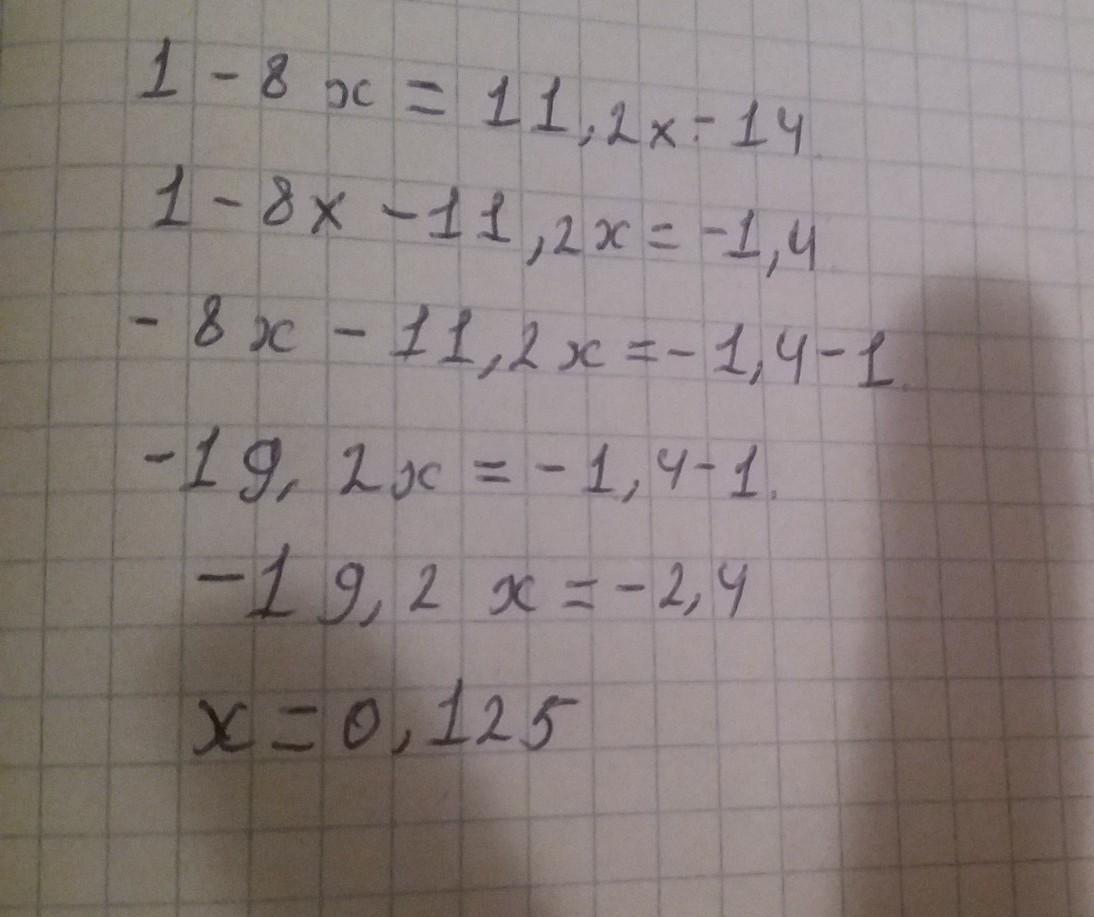 1 - 8x = 11,2x - 14
1 - 8x - 11,2x = -1,4
- 8x - 11,2x = - 1,4 - 1
-19,2x = - 1,4 - 1.
-19,2x = -2,4
x = 0,125